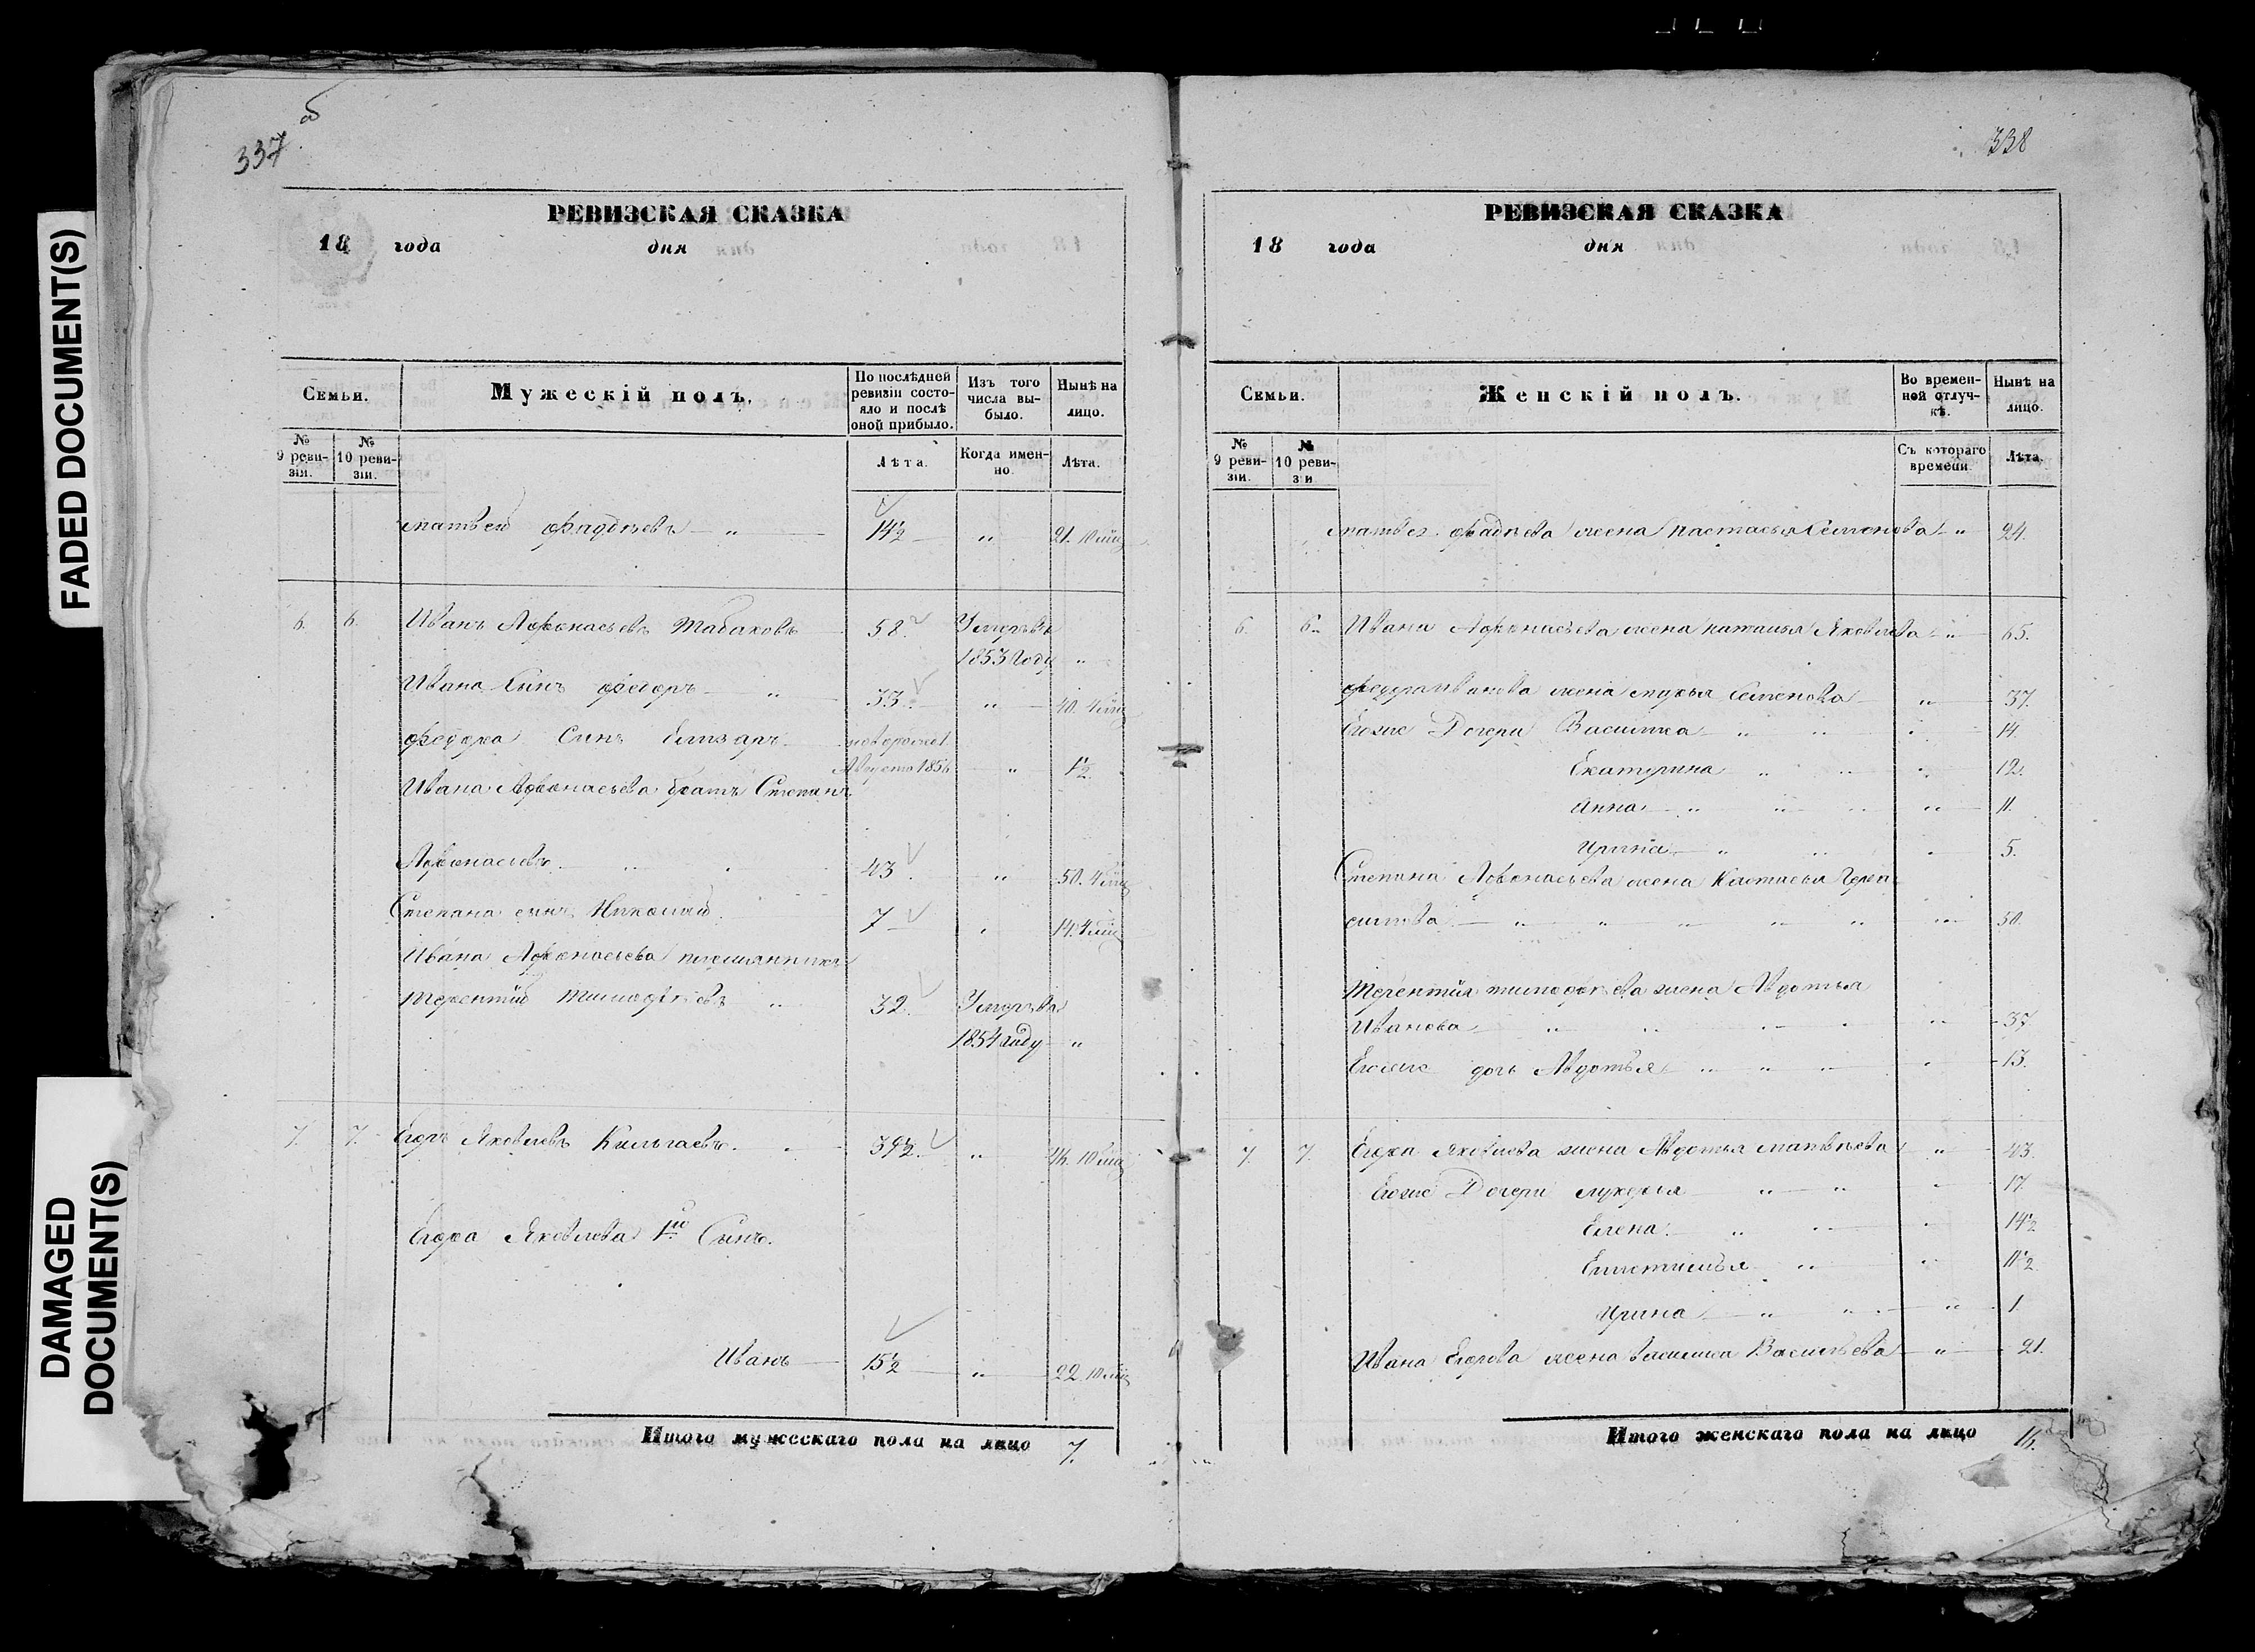 FADED DOCUMENT(S)
DAMAGED
DOCUMENT(S)
337
б
РЕВИЗСКАЯ СКАЗКА
18 года дня
Семьи.
Мужескій полъ.
По послѣдней
ревизіи состо-
яло и послѣ
оной прибыло.
Изъ того
числа вы-
было.
Нынѣ на
лицо.
№
9 реви-
зіи.
№
10 реви-
зіи.
Лѣта.
Когда имен-
но.
Лѣта.
Матвей Фадѣевъ — „ 14½ „ 21. 10 мѣц
6. 6. Иванъ Афонасьевъ Табаковъ 58. Умеръ въ
1853 году „
Ивана Сынъ Федоръ „ 33. „ 40. 4 мѣц
Федора Сынъ Елизаръ новорожд.
Августа 1856 „ 1½
Ивана Афонасьева братъ Степанъ
Афонасьевъ 43. „ 50. 4 мѣц
Степана сынъ Николай 7 „ 14. 4 мѣц
Ивана Афонасьева племянникъ
Терентий Тимофѣевъ „ 32. Умеръ въ
1854 году „
7. 7. Егоръ Яковлевъ 39½. „ 46. 10 мѣц
Егора Яковлева 1й Сынъ.
Иванъ 15½ „ 22. 10 мѣц
Итого мужескаго пола на лицо 7.
338
РЕВИЗСКАЯ СКАЗКА
18 года дня
Семьи.
Женскій полъ.
Во времен-
ной отлуч-
кѣ.
Нынѣ на
лицо.
№
9 реви-
зіи.
№
10 реви-
зи
Съ котораго
времени.
Лѣта.
Матвея Фадѣева жена Настасья Семенова „ 24.
6. 6. Ивана Афонасьева жена Наталья Яковлева „ 65.
Федора Иванова жена Марья Семенова „ 37.
Егоже Дочери Василиса „ „ 14.
Екатерина „ „ 12.
Анна „ „ „ 11.
Ирина „ „ 5.
Степана Афонасьева жена Настасья Гера-
симова „ „ „ „ „ „ 50.
Терентия Тимофѣева жена Авдотья
Иванова „ „ „ „ 37.
Егоже дочь Авдотья „ „ „ 13.
7. 7. Егора Яковлева жена Авдотья Матвѣева „ 43.
Егоже Дочери Лукерья „ „ „ 17.
Елена „ „ 14½
„ „ 11½
Ирина „ „ „ 1
Ивана Егорова жена Василиса Васильева „ 21.
Итого женскаго пола на лицо 16.